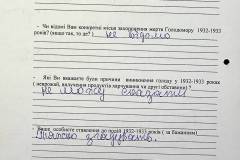 - Чи відомі Вам конкретні місця захоронення жертв Голодомору 1932-1933 років? (якщо так, то де?) не відомо
- Які Ви вважаєте були причини виникнення голоду у 1932-1933 роках ( неврожай, вилучення продуктів харчування чи другі обставини)
не можу сказати
- Ваше, особисте ставлення до подій 1932-1933 років ( за бажанням)
тяжко згадувать.